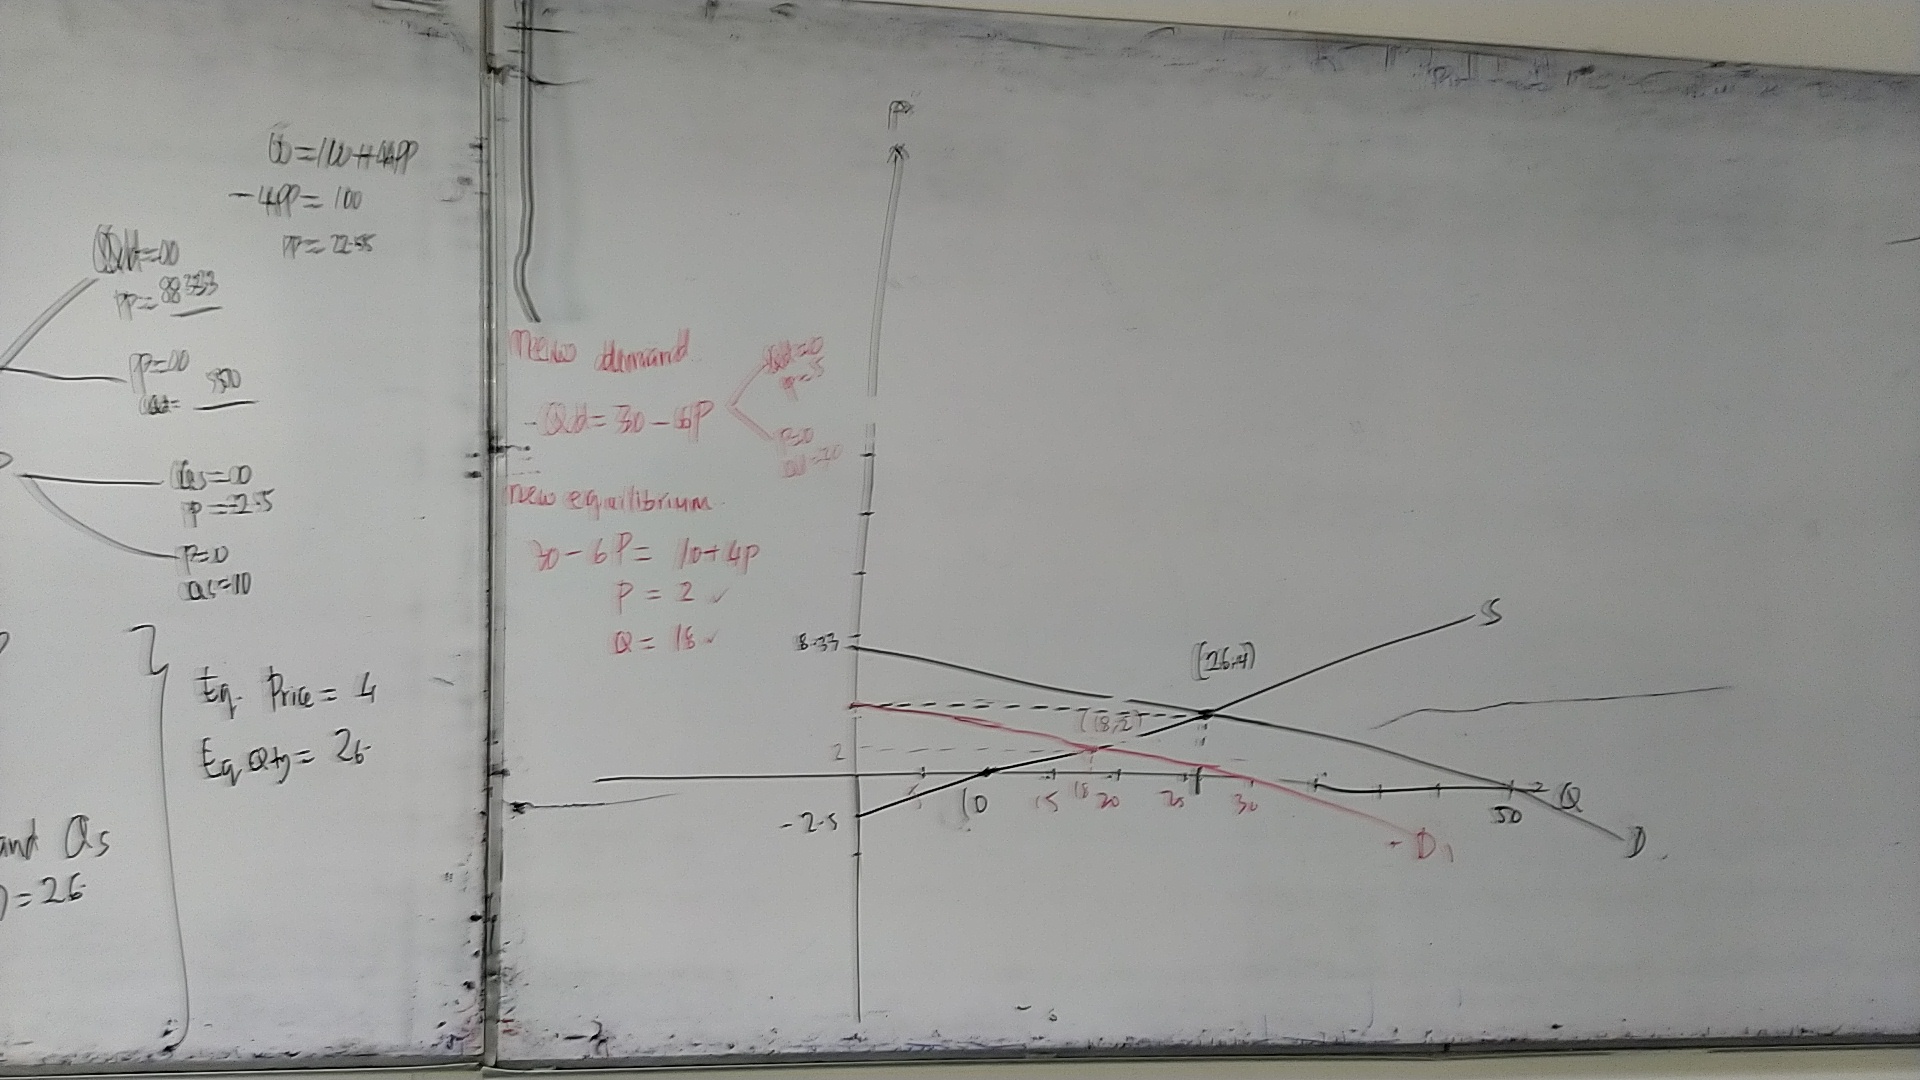 0=10+4P
-4P= 10
P= -2.5
Qd=0
P= 8.33
P=0
Qd= 50
Qs=0
P=-2.5
P=0
Qs=10
Eq. Price = 4
Eq Qty = 26
and Qs
=26
New demand
Qd= 30-6P
Qd=0
P=5
P=0
New equilibrium
30-6P= 10+4P
P = 2 ✓
Q= 18 ✓
P
8.33
2
-2.5
(26,4)
(18,2)
S
10
15
18
20
25
30
50
Q
D1
D